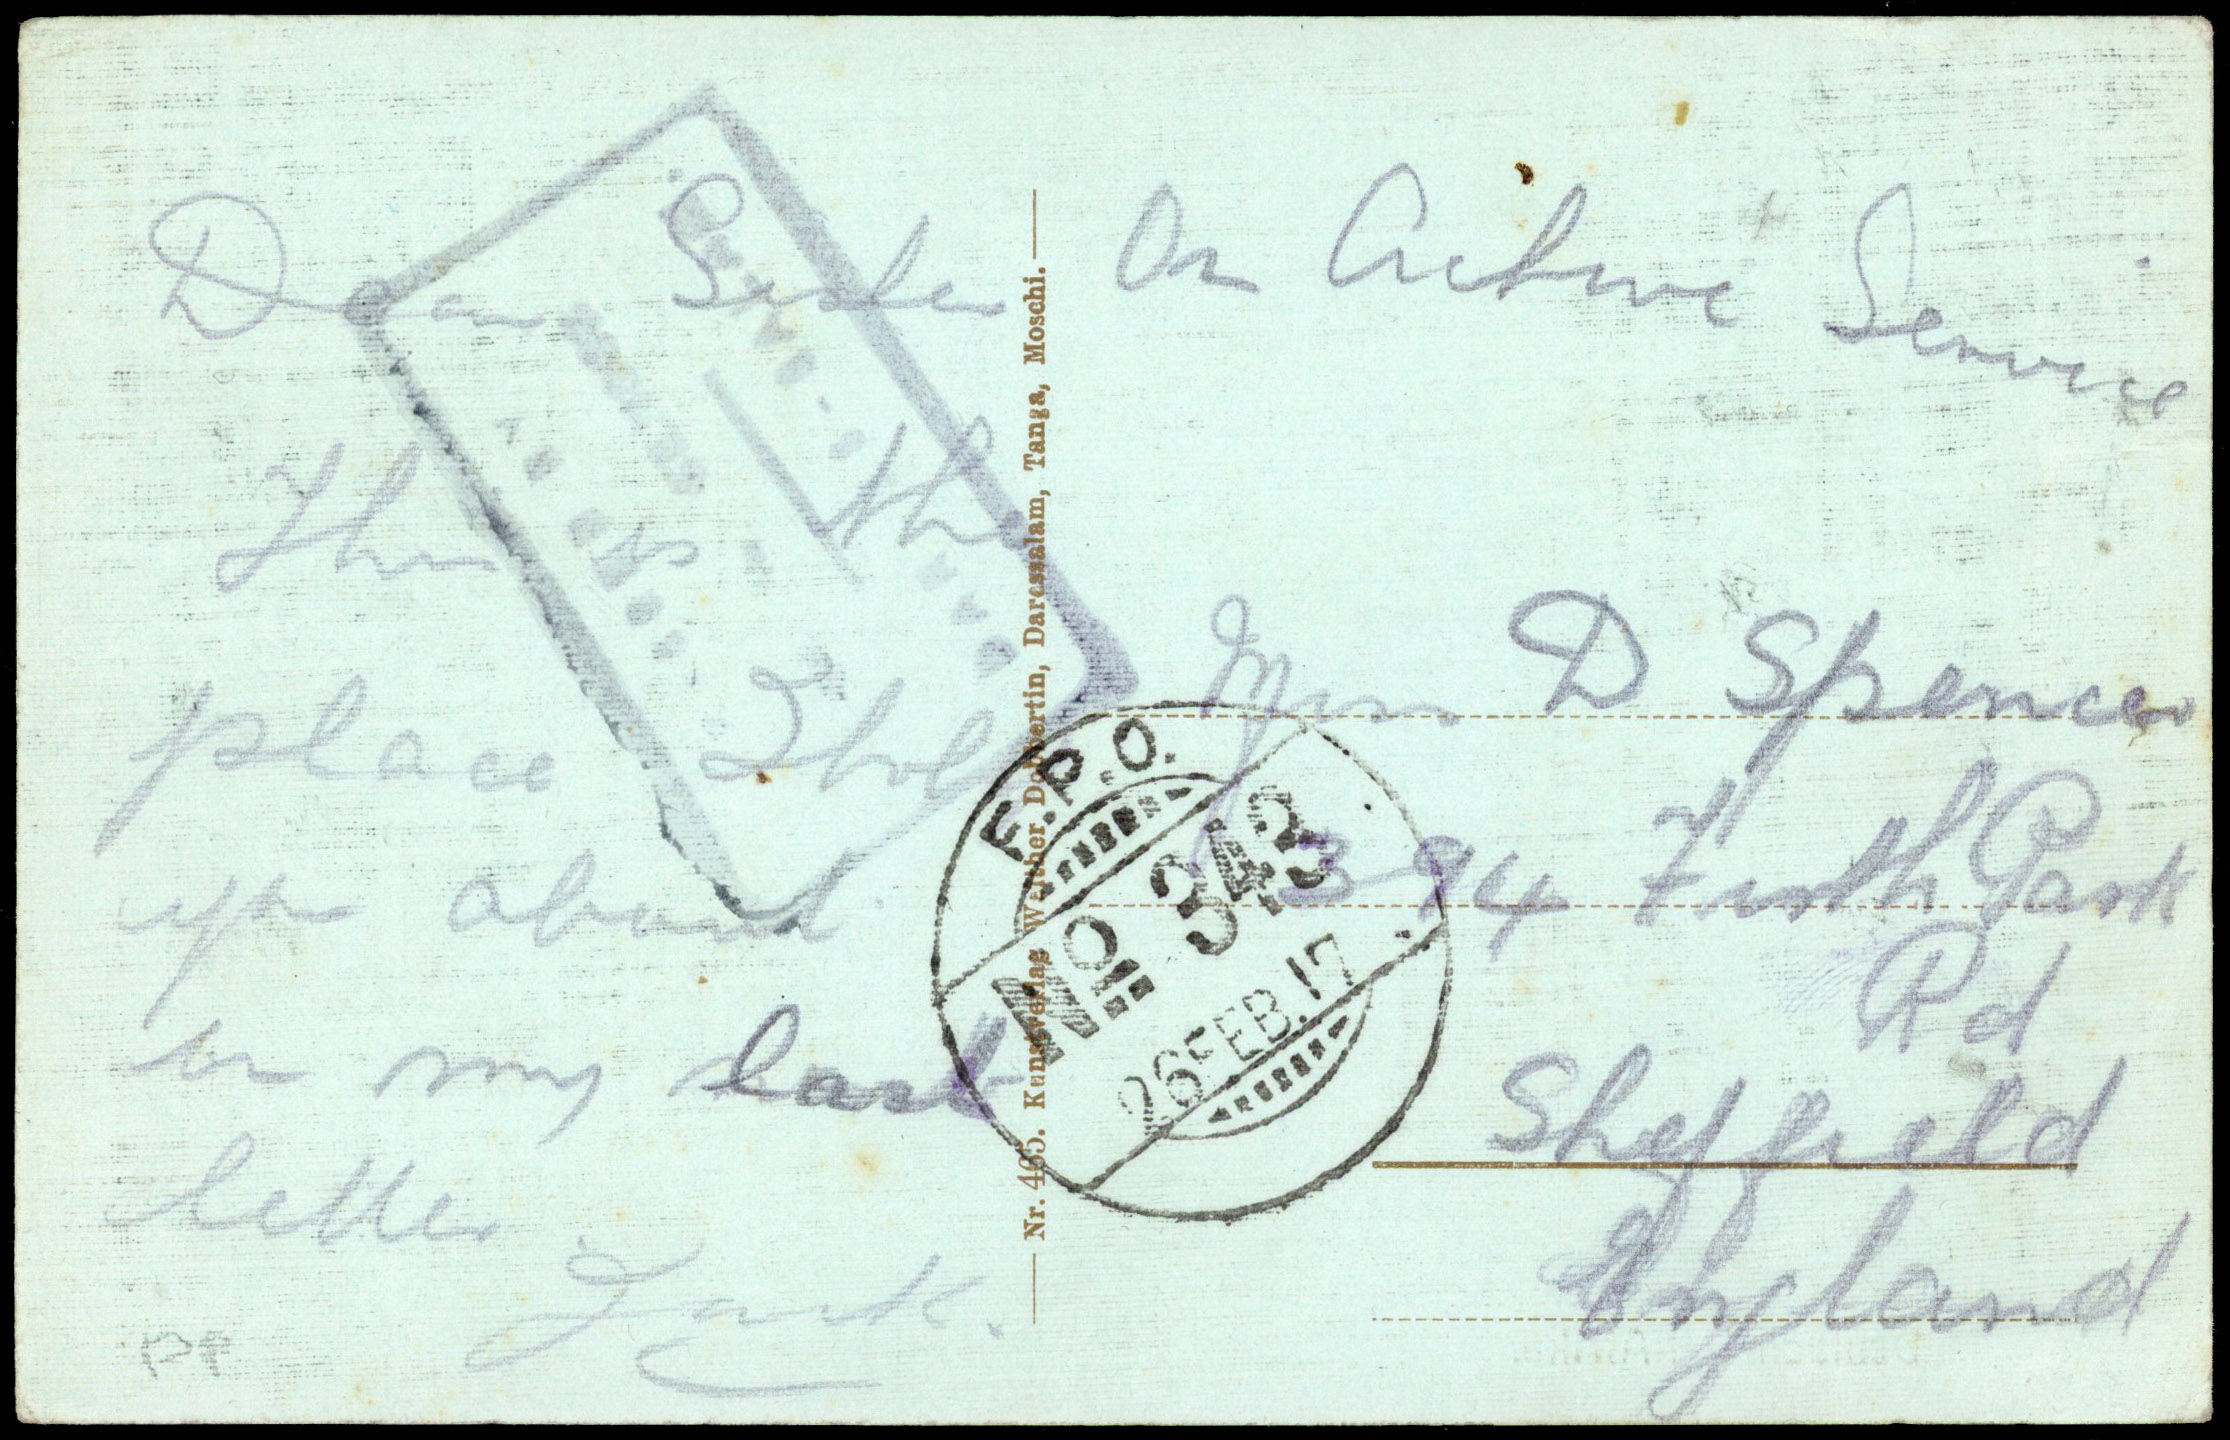 Dear Sister
This is the
place I told
you about
in my last
letter
Jack.
On Active Service
Miss D Spencer
394 Firth Park
Rd
Sheffield
England
F.P.O.
No. 343
26 FEB. 17
Nr. 465. Kunstverlag Walther Dobbertin, Daressalam, Tanga, Moschi.